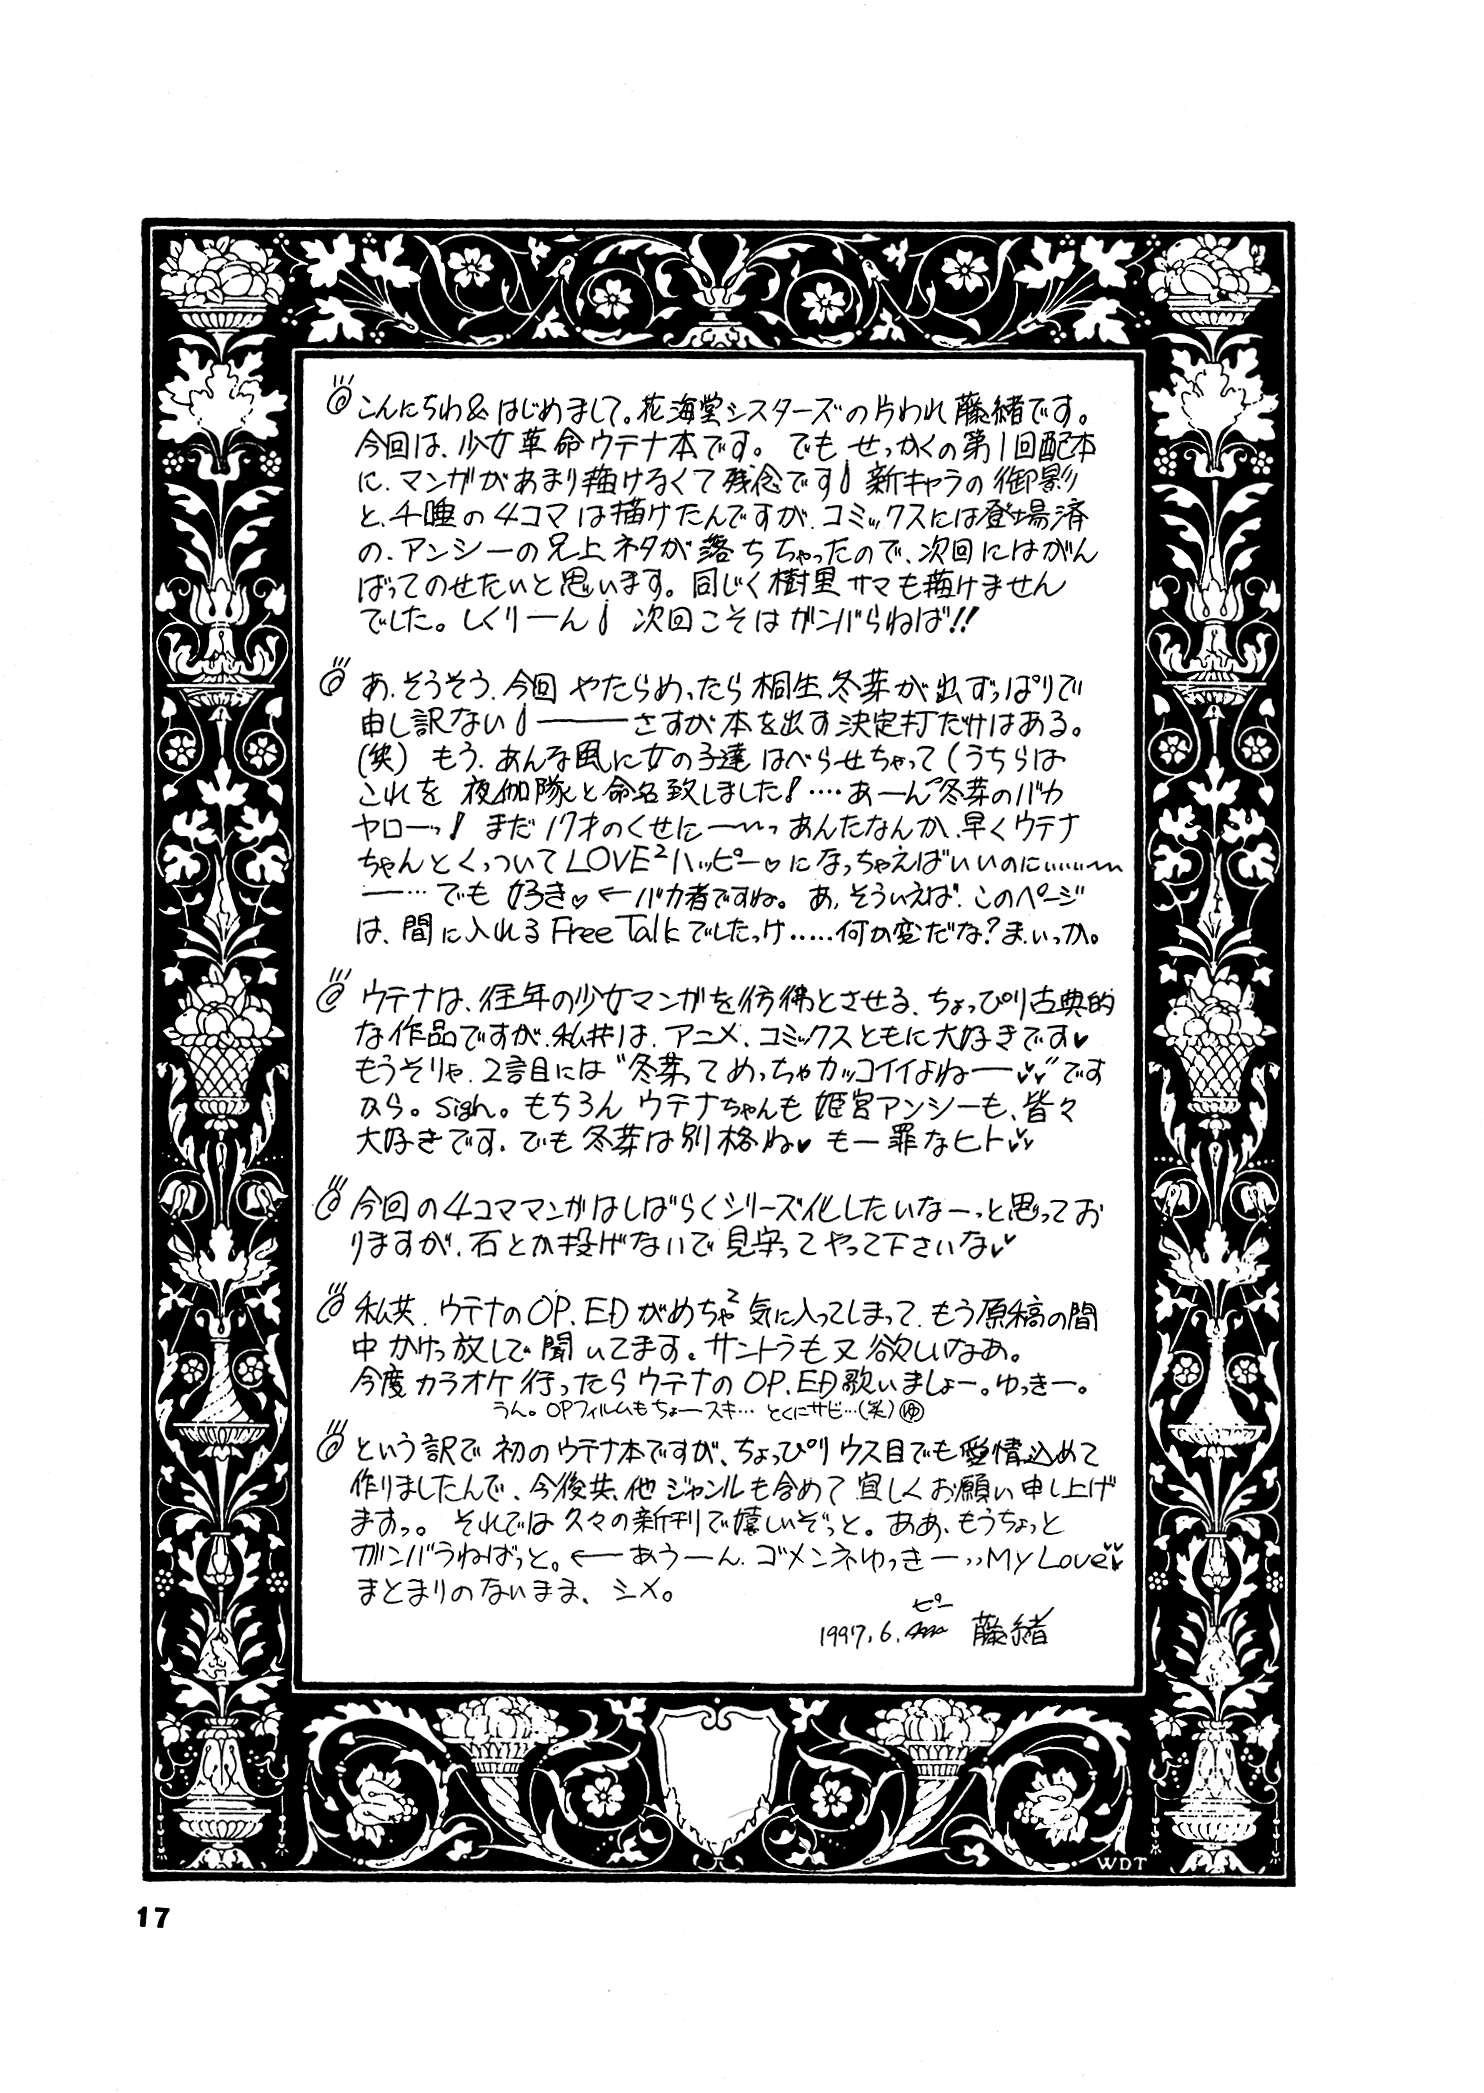 こんにちわ&はじめまして。花海堂シスターズの片われ藤緒です。
今回は、少女革命ウテナ本です。でもせっかくの第1回配本
に、マンガがあまり描けなくて残念です♪新キャラの御影
と、千唾の4コマは描けたんですが、コミックスには登場済
の、アンシーの兄上ネタが落ちちゃったので、次回にはがん
ばってのせたいと思います。同じく樹里サマも描けません
でした。しくりーん♪ 次回こそはガンバらねば!!
あ、そうそう、今回やたらめったら桐生冬芽が出ずっぱりで
申し訳ない♪―――さすが本を出す決定打だけはある。
(笑) もう、あんな風に女の子達はべらせちゃって(うちらは
これを夜伽隊と命名致しました!‥‥あーん冬芽のバカ
ヤローっ! まだ17才のくせに〜〜っあんたなんか、早くウテナ
ちゃんとくっついてLOVE²ハッピー♡になっちゃえばいいのにぃぃぃぃ〜
―…でも好き♡←バカ者ですね。あ、そういえば、このページ
は、間に入れるFree Talkでしたっけ……何か変だな?ま、いっか。
ウテナは、往年の少女マンガを彷彿とさせる、ちょっぴり古典的
な作品ですが、私共は、アニメ、コミックスともに大好きです♥
もうそりゃ、2言目には"冬芽ってめっちゃカッコイイよねー♥♥"です
から。Sigh。もちろんウテナちゃんも姫宮アンシーも、皆々
大好きです。でも冬芽は別格ね♥ もー罪なヒト♥♥
今回の4コママンガはしばらくシリーズ化したいなーっと思ってお
りますが、石とか投げないで見守ってやって下さいな♥
私共、ウテナのOP、EDがめちゃ²気に入ってしまって、もう原稿の間
中かけっ放しで聞いてます。サントラも又欲しいなあ。
今度カラオケ行ったらウテナのOP、ED歌いましょー。ゆっきー。
うん。OPフィルムもちょースキ… とくにサビ…(笑)ゆ
という訳で初のウテナ本ですが、ちょっぴりウス目でも愛情込めて
作りましたんで、今後共、他ジャンルも含めて宜しくお願い申し上げ
ますっ。それでは久々の新刊で嬉しいぞっと。ああ、もうちょっと
ガンバらねばっと。←―あうーん、ゴメンネゆっきー、、My Love♥♥
まとまりのないまま、シメ。
ピー
1997.6. 藤緒
WDT
17